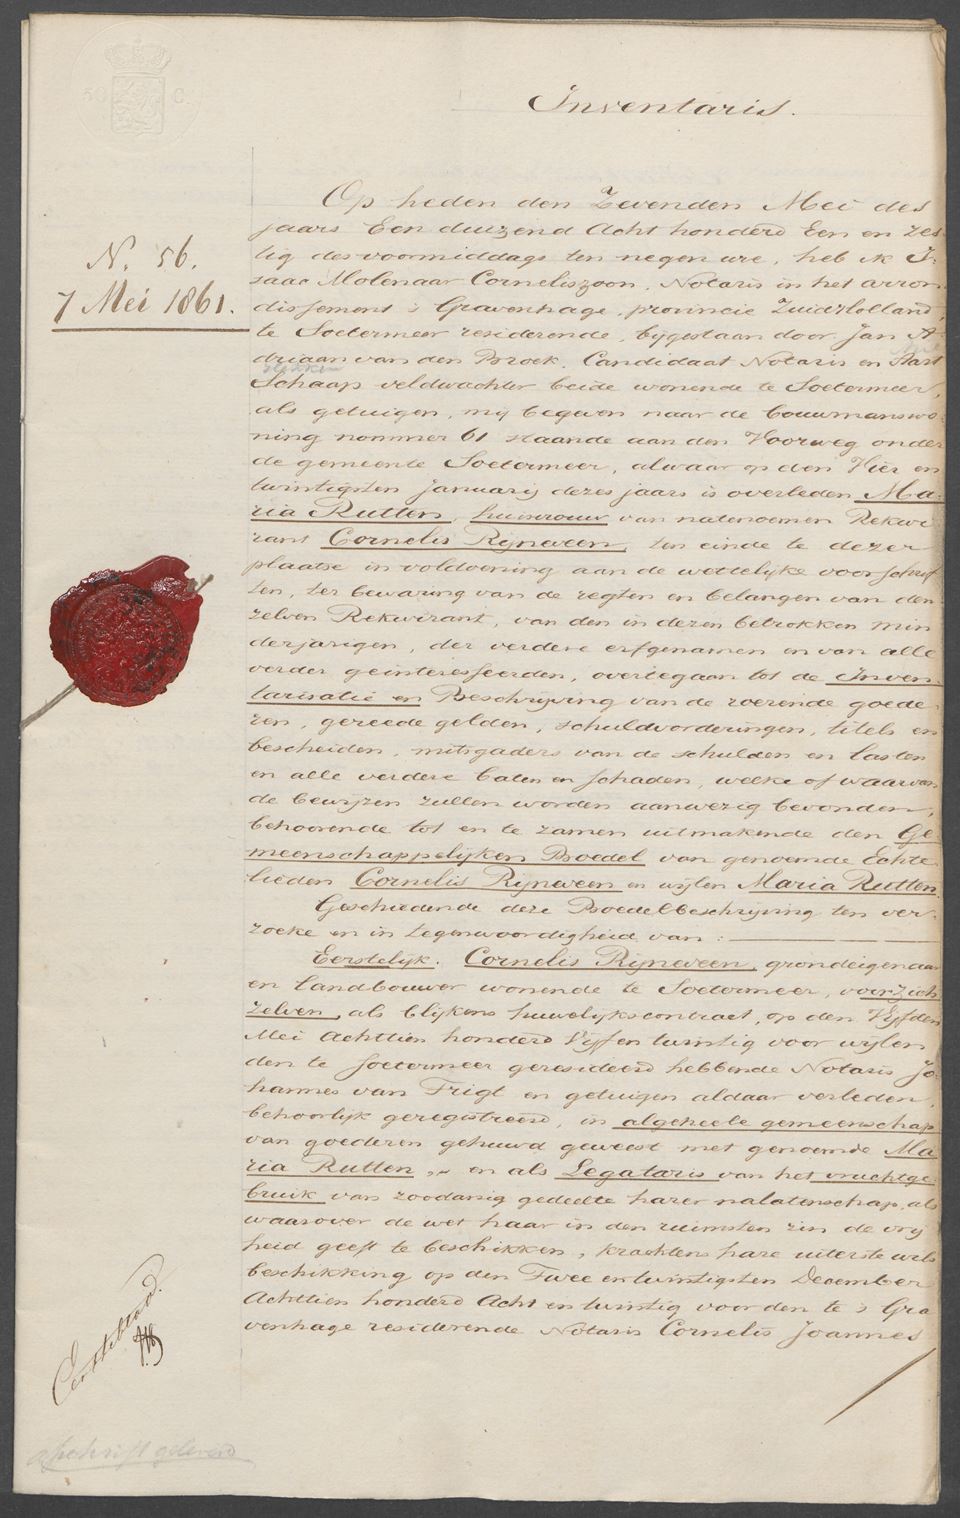 50 C.
Inventaris.
N. 56.
7 Mei 1861.
Op heden den Zevenden Mei des
jaars Een duizend Acht honderd Een en zes
tig des voormiddags ten negen ure, heb ik I-
saac Molenaar Corneliszoon, Notaris in het arron
dissement 's Gravenhage, provincie Zuid Holland,
te Soetermeer residerende, bijgestaan door Jan A-
driaan van den Broek, Candidaat Notaris en Bart
Schaap veldwachter beide wonende te Soetermeer,
als getuigen, mij begeven naar de bouwmanswo-
ning nommer 61 staande aan den Voorweg onder
de gemeente Soetermeer, alwaar op den Vier en
twintigsten Januarij dezes jaars is overleden Ma-
ria Rutten, huisvrouw van natenoemen Rekwi
rant Cornelis Rijneveen, ten einde te dezer
plaatse in voldoening aan de wettelijke voorschrif
ten, ter bewaring van de regten en belangen van den
zelven Rekwirant, van den in dezen betrokken min
derjarigen, der verdere erfgenamen en van alle
verder geinteresseerden, overtegaan tot de Inven-
tarisatie en Beschrijving van de roerende goede-
ren, gereede gelden, schuldvorderingen, titels en
bescheiden, mitsgaders van de schulden en lasten
en alle verdere baten en schaden, welke of waarvan
de bewijzen zullen worden aanwezig bevonden,
behoorende tot en te zamen uitmakende den Ge-
meenschappelijken Boedel van genoemde Echte-
lieden Cornelis Rijneveen en wijlen Maria Rutten.
Geschiedende deze Boedelbeschrijving ten ver-
zoeke en in tegenwoordigheid van:
Eerstelijk. Cornelis Rijneveen, grondeigenaar
en landbouwer wonende te Soetermeer, voor zich
zelven, als blijkens huwelijkscontract, op den Vijfden
Mei Achttien honderd Vijf en twintig voor wijlen
den te Soetermeer geresideerd hebbende Notaris Jo-
hannes van Frigt en getuigen aldaar verleden,
behoorlijk geregistreerd, in algeheele gemeenschap
van goederen gehuwd geweest met genoemde Ma
ria Rutten, en als Legataris van het vruchtge-
bruik van zoodanig gedeelte harer nalatenschap, als
waarover de wet haar in den ruimsten zin de vrij
heid geeft te beschikken, krachtens hare uiterste wils
beschikking op den Twee en twintigsten December
Achttien honderd Acht en twintig voor den te 's Gra
venhage residerende Notaris Cornelis Joannes
Eerste blad.
afschrift geleverd